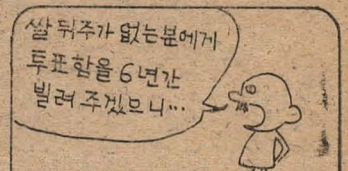 쌀 뒤주가 없는분에게
투표함을 6년간
빌려 주겠으니...